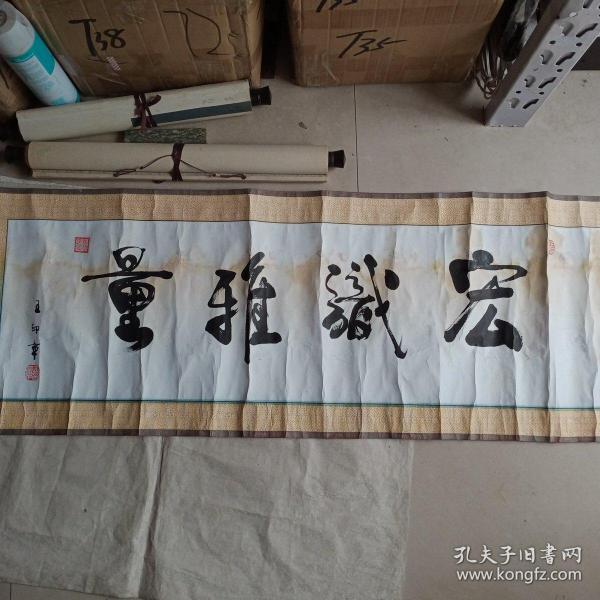 宏識雅量
王印章
T38
T35
孔夫子旧书网
www.kongfz.com